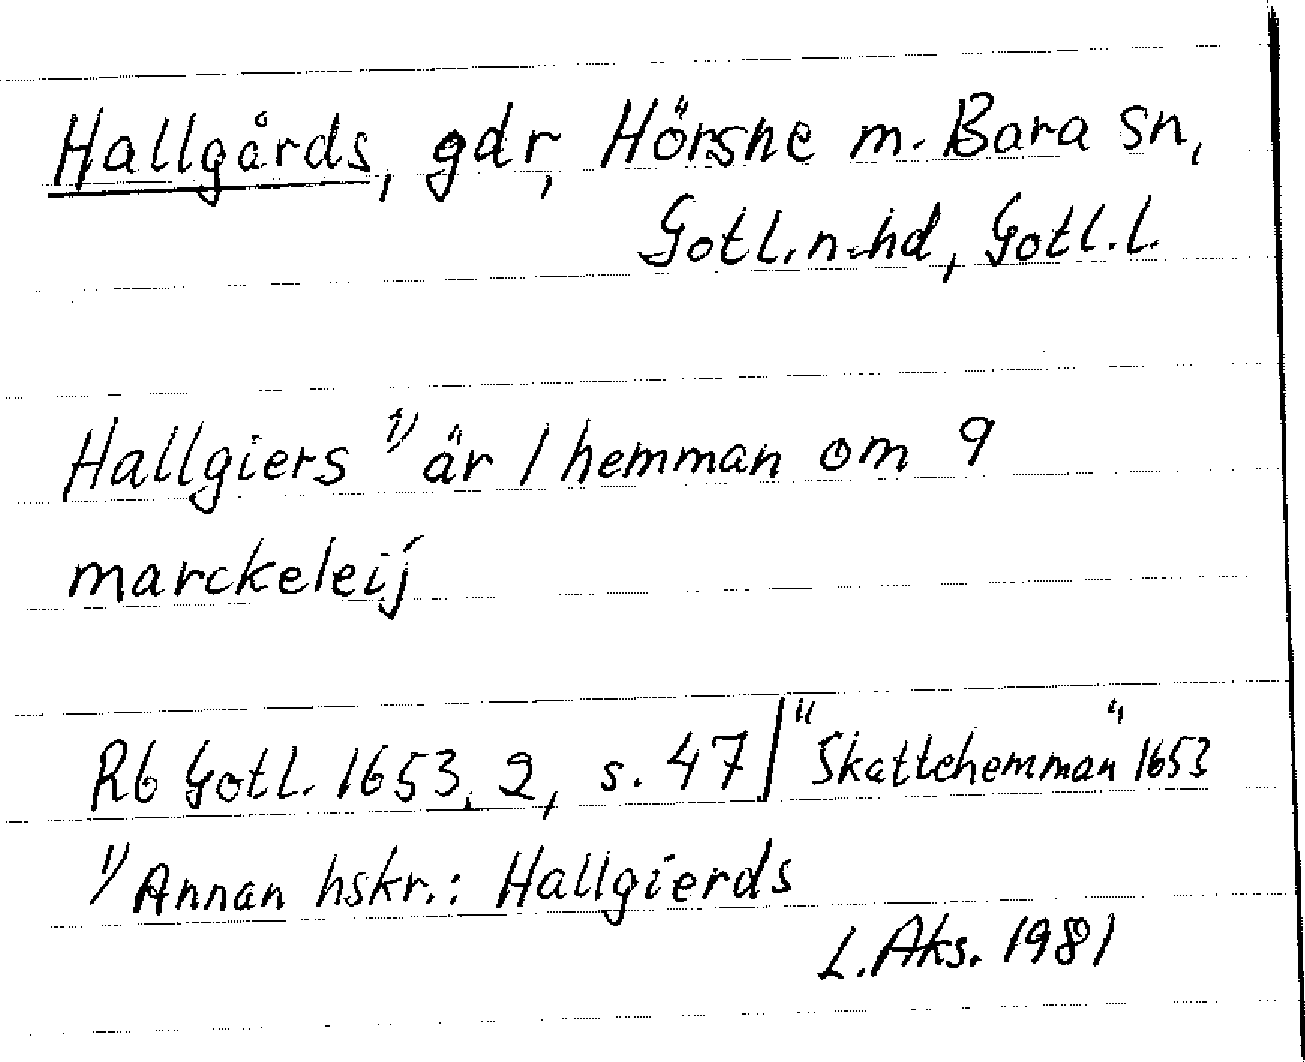 Hallgårds, gdr, Hörsne m. Bara sn,
Gotl. n. hd, Gotl. l.
Hallgiers 1) är 1 hemman om 9
marckeleij
Rb Gotl. 1653, 2, s. 47 | "Skattehemman" 1653
1) Annan hskr.: Hallgierds
L. Aks. 1981